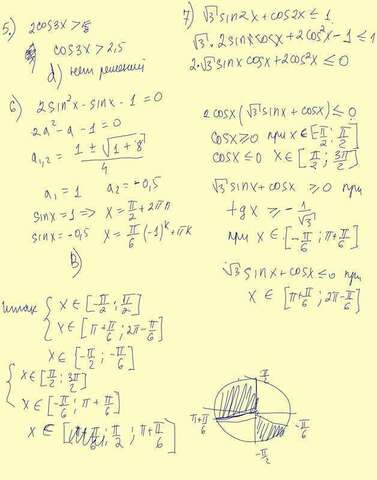 5) 2cos3x > 5
cos3x > 2,5
d) нет решений
6) 2sin²x - sinx - 1 = 0
2a² - a - 1 = 0
a₁,₂ = (1 ± √(1+8))/4
a₁ = 1 a₂ = -0,5
sinx = 1 => x = π/2 + 2πn
sinx = -0,5 x = π/6 (-1)^k + πk
В)
7) √3 sin2x + cos2x ≤ 1
√3 · 2sinxcosx + 2cos²x - 1 ≤ 1
2·√3 sinx cosx + 2cos²x ≤ 0
2cosx(√3 sinx + cosx) ≤ 0
cosx ≥ 0 при x ∈ [-π/2; π/2]
cosx ≤ 0 x ∈ [π/2; 3π/2]
√3 sinx + cosx ≥ 0 при
tgx ≥ -1/√3
при x ∈ [-π/6; π + π/6]
√3 sinx + cosx ≤ 0 при
x ∈ [π + π/6; 2π - π/6]
{ x ∈ [-π/2; π/2]
x ∈ [π + π/6; 2π - π/6]
x ∈ [-π/2; -π/6]
{ x ∈ [π/2; 3π/2]
x ∈ [-π/6; π + π/6]
x ∈ [π/2; π + π/6]
π/2
π + π/6
-π/6
-π/2